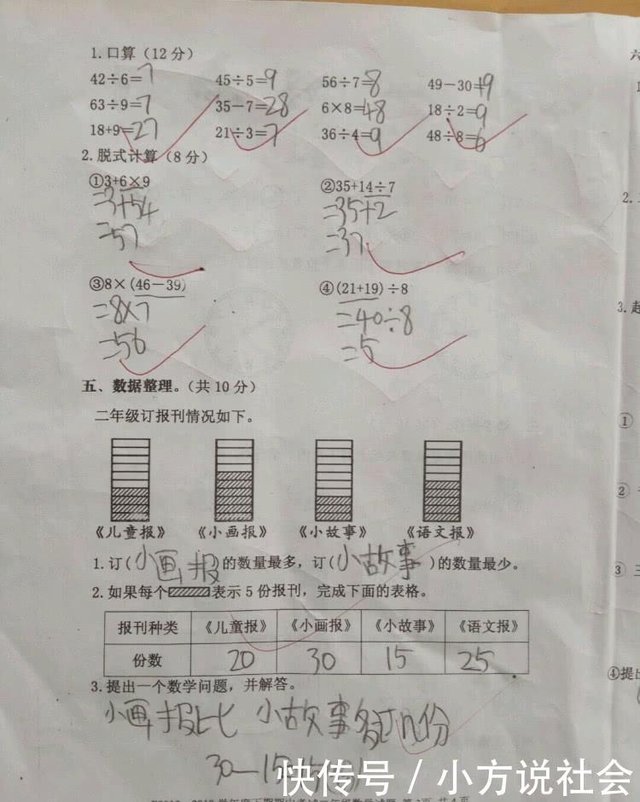 1.口算（12分）
42÷6=7 45÷5=9 56÷7=8 49－30=19
63÷9=7 35－7=28 6×8=48 18÷2=9
18+9=27 21÷3=7 36÷4=9 48÷8=6
2.脱式计算（8分）
①3+6×9 ②35+14÷7
=3+54 =35+2
=57 =37
③8×(46－39) ④(21+19)÷8
=8×7 =40÷8
=56 =5
五、数据整理。（共10分）
二年级订报刊情况如下。
《儿童报》 《小画报》 《小故事》 《语文报》
1.订(小画报)的数量最多，订(小故事)的数量最少。
2.如果每个表示5份报刊，完成下面的表格。
报刊种类 《儿童报》 《小画报》 《小故事》 《语文报》
份数 20 30 15 25
3.提出一个数学问题，并解答。
小画报比小故事多订几份
30－15
快传号／小方说社会
六
1
2.
3.
①
②
③
④